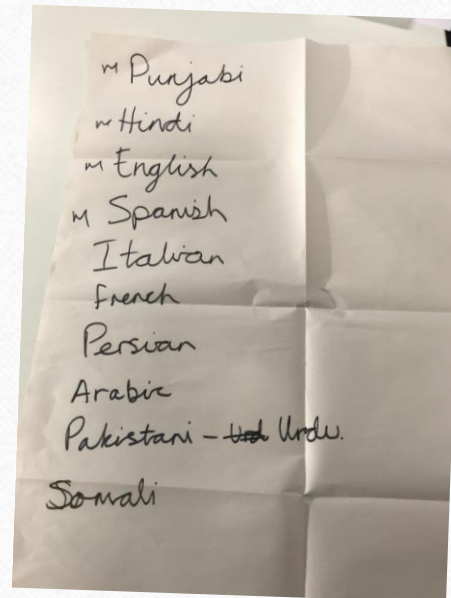 M Punjabi
M Hindi
M English
M Spanish
Italian
French
Persian
Arabic
Pakistani - Urd Urdu.
Somali